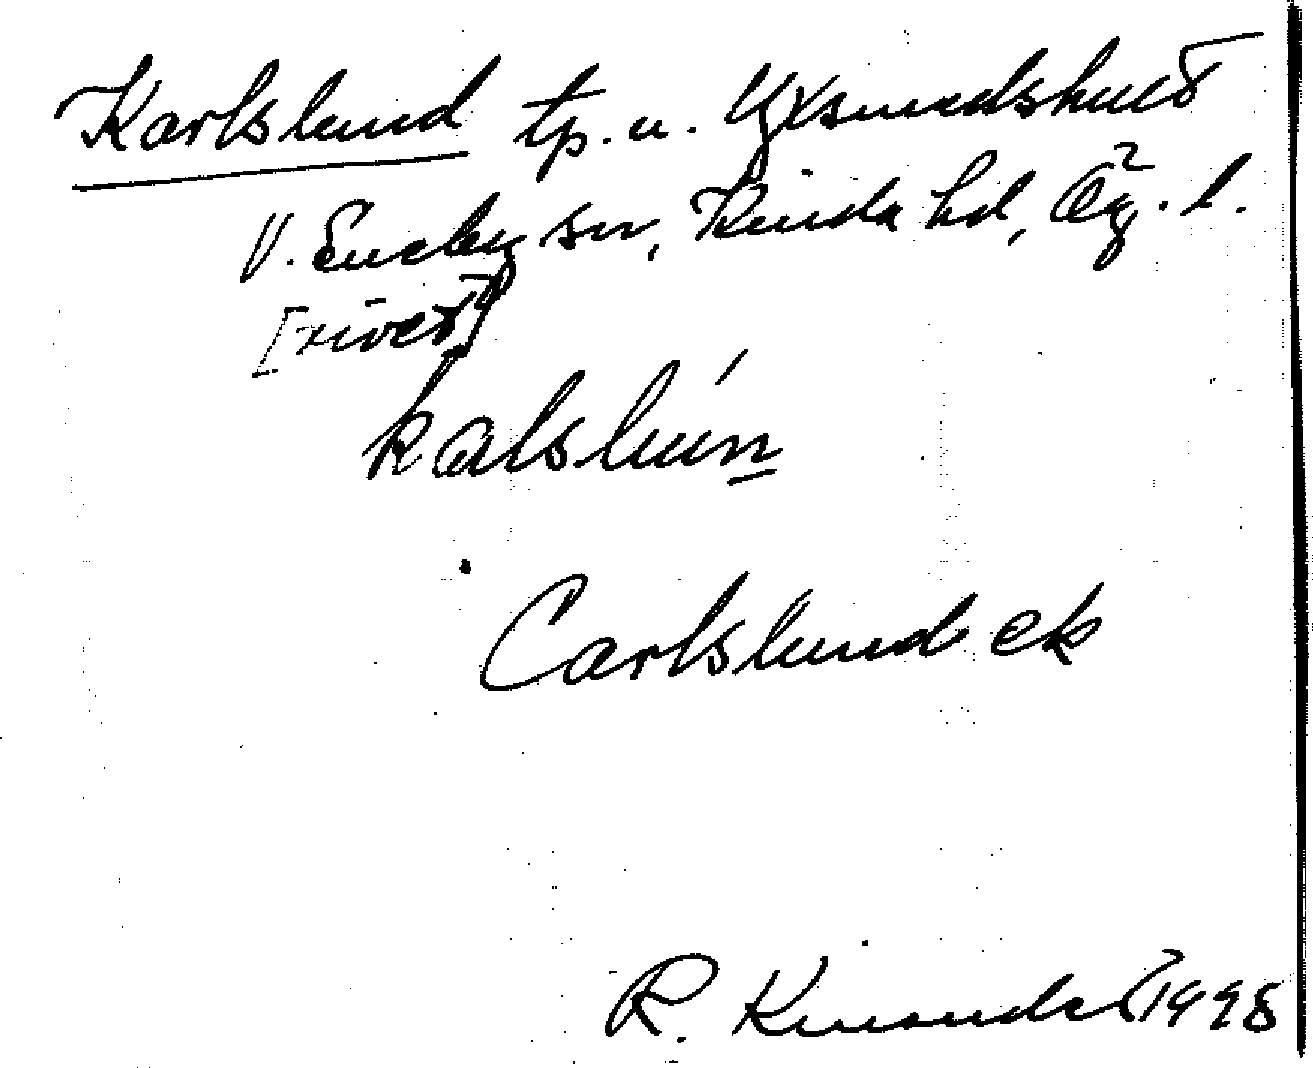 Karlslund tp. u. Yxsmedshult
V. Eneby sn, Kinda hd, Ög. l.
[rivet]
kalslún
Carlslund ek
R. Kinander 1998